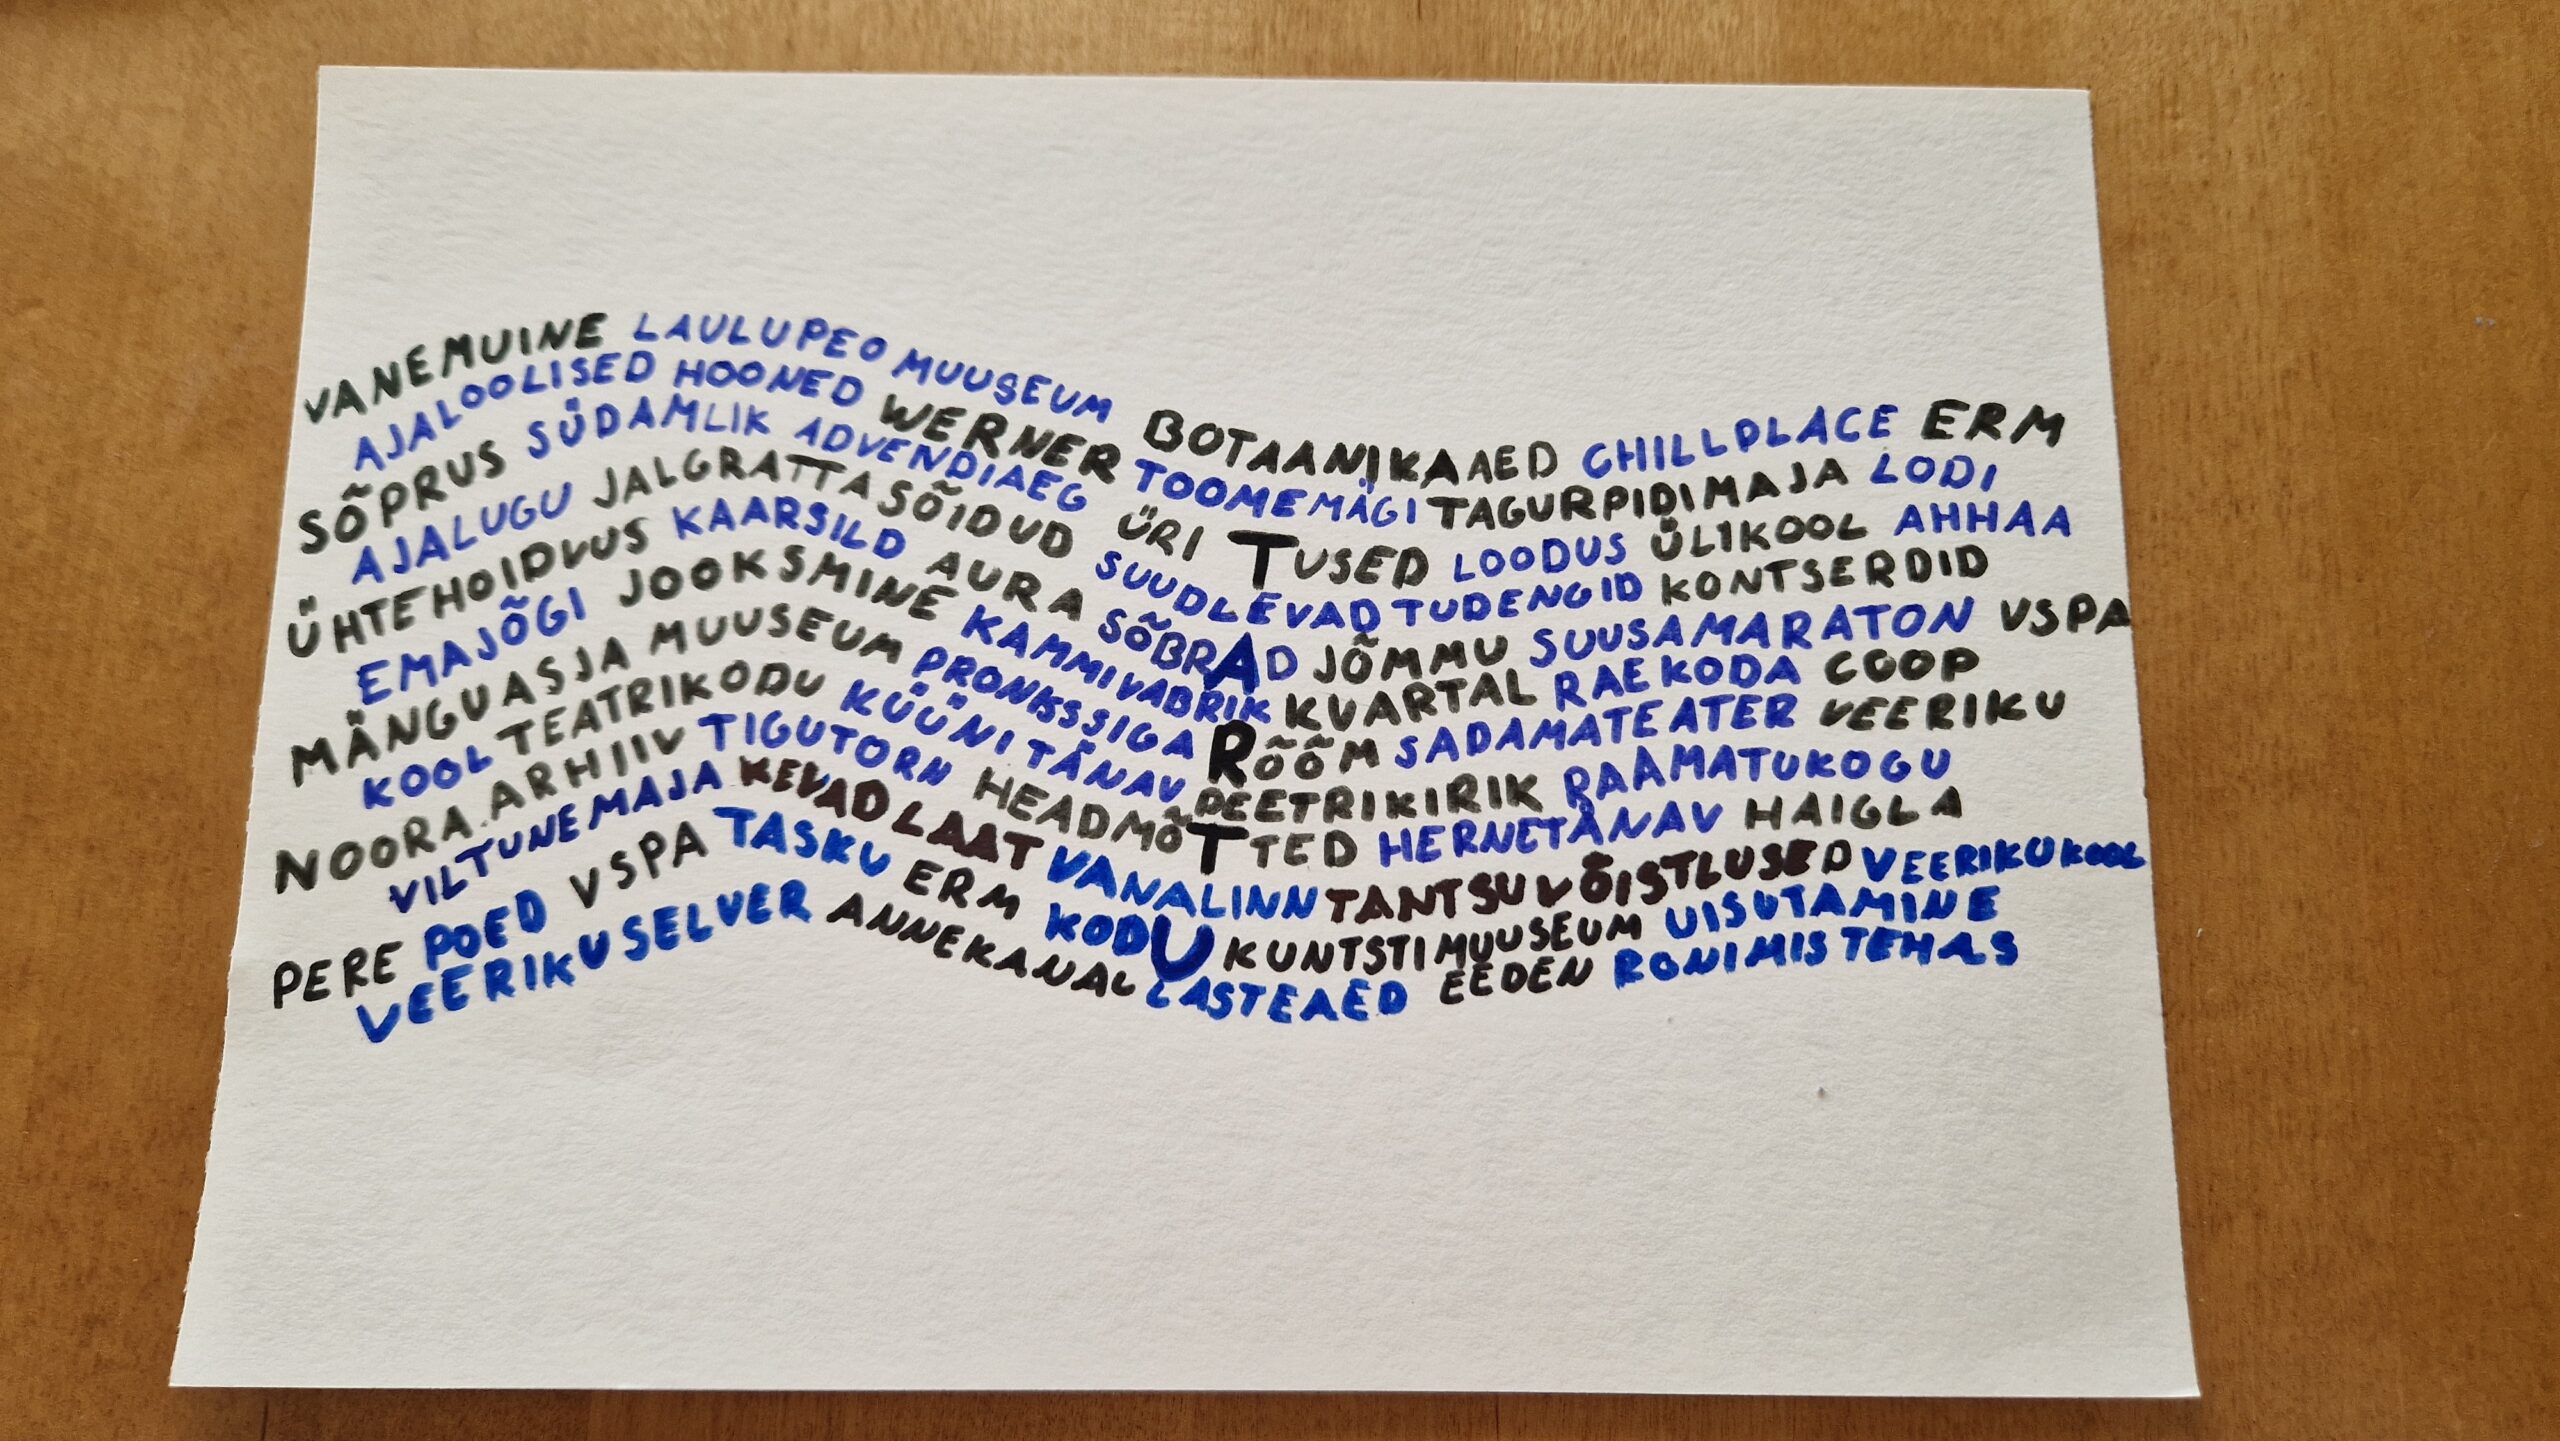 VANEMUINE LAULUPEO MUUSEUM BOTAANIKAAED CHILLPLACE ERM
AJALOOLISED HOONED WERNER TOOMEMÄGI TAGURPIDIMAJA LODI
SÕPRUS SÜDAMLIK ADVENDIAEG ÜRITUSED LOODUS ÜLIKOOL AHHAA
AJALUGU JALGRATTASÕIDUD SUUDLEVAD TUDENGID KONTSERDID
ÜHTEHOIDVUS KAARSILD AURA SÕBRAD JÕMMU SUUSAMARATON VSPA
EMAJÕGI JOOKSMINE KAMMIVABRIK KVARTAL RAEKODA COOP
MÄNGUASJA MUUSEUM PRONKSSIGA RÕÕM SADAMATEATER VEERIKU
KOOL TEATRIKODU KÜÜNI TÄNAV PEETRIKIRIK RAAMATUKOGU
NOORA.ARHIIV TIGUTORN HEADMÕTTED HERNETÄNAV HAIGLA
VILTUNEMAJA KEVADLAAT VANALINN TANTSUVÕISTLUSED VEERIKUKOOL
PERE POED VSPA TASKU ERM KODU KUNTSTIMUUSEUM UISUTAMINE
VEERIKUSELVER ANNEKANAL LASTEAED EEDEN RONIMISTEHAS